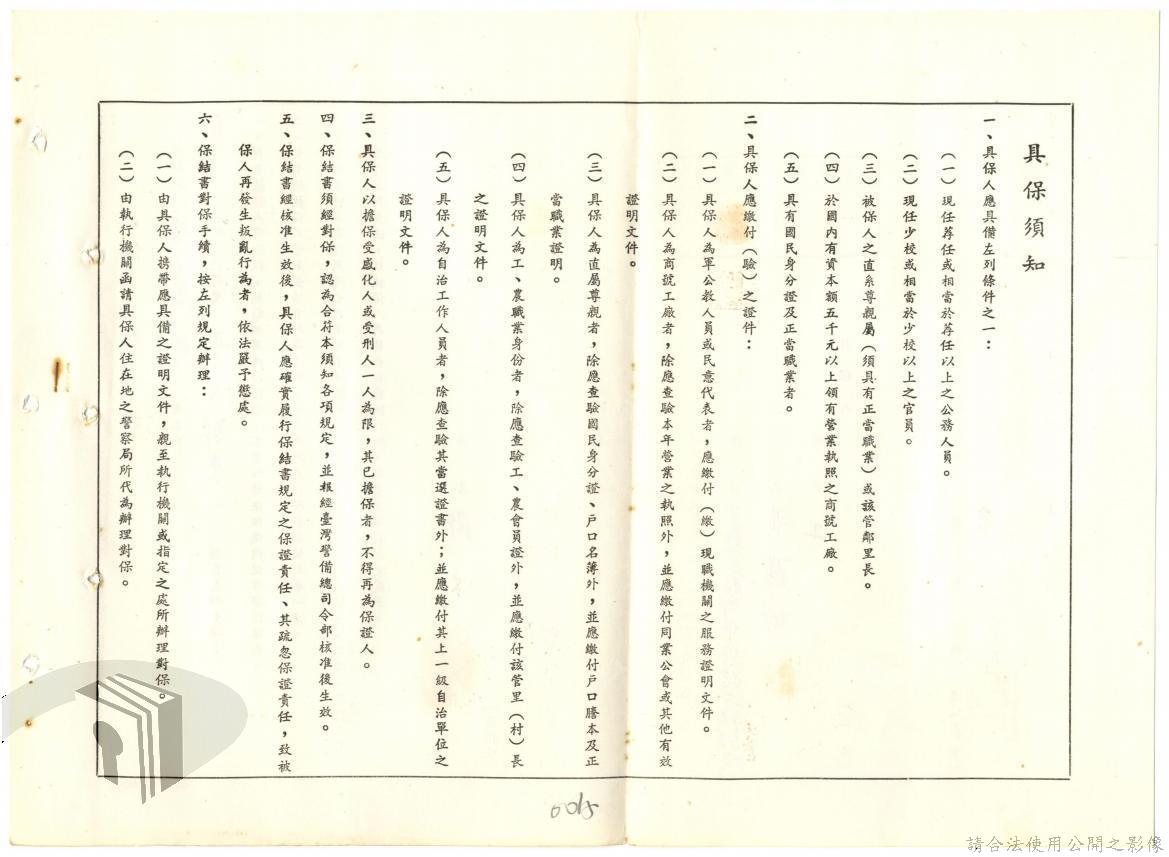 具保須知
一、具保人應具備左列條件之一：
（一）現任荐任或相當於荐任以上之公務人員。
（二）現任少校或相當於少校以上之官員。
（三）被保人之直系尊親屬（須具有正當職業）或該管鄰里長。
（四）於國內有資本額五千元以上領有營業執照之商號工廠。
（五）具有國民身分證及正當職業者。
二、具保人應繳付（驗）之證件：
（一）具保人為軍公教人員或民意代表者，應繳付（繳）現職機關之服務證明文件。
（二）具保人為商號工廠者，除應查驗本年營業之執照外，並應繳付同業公會或其他有效
證明文件。
（三）具保人為直屬尊親者，除應查驗國民身分證、戶口名簿外，並應繳付戶口謄本及正
當職業證明。
（四）具保人為工、農職業身份者，除應查驗工、農會員證外，並應繳付該管里（村）長
之證明文件。
（五）具保人為自治工作人員者，除應查驗其當選證書外；並應繳付其上一級自治單位之
證明文件。
三、具保人以擔保受感化人或受刑人一人為限，其已擔保者，不得再為保證人。
四、保結書須經對保，認為合符本須知各項規定，並報經臺灣警備總司令部核准後生效。
五、保結書經核准生效後，具保人應確實履行保結書規定之保證責任、其疏忽保證責任，致被
保人再發生叛亂行為者，依法嚴予懲處。
六、保結書對保手續，按左列規定辦理：
（一）由具保人携帶應具備之證明文件，親至執行機關或指定之處所辦理對保。
（二）由執行機關函請具保人住在地之警察局所代為辦理對保。
0015
請合法使用公開之影像